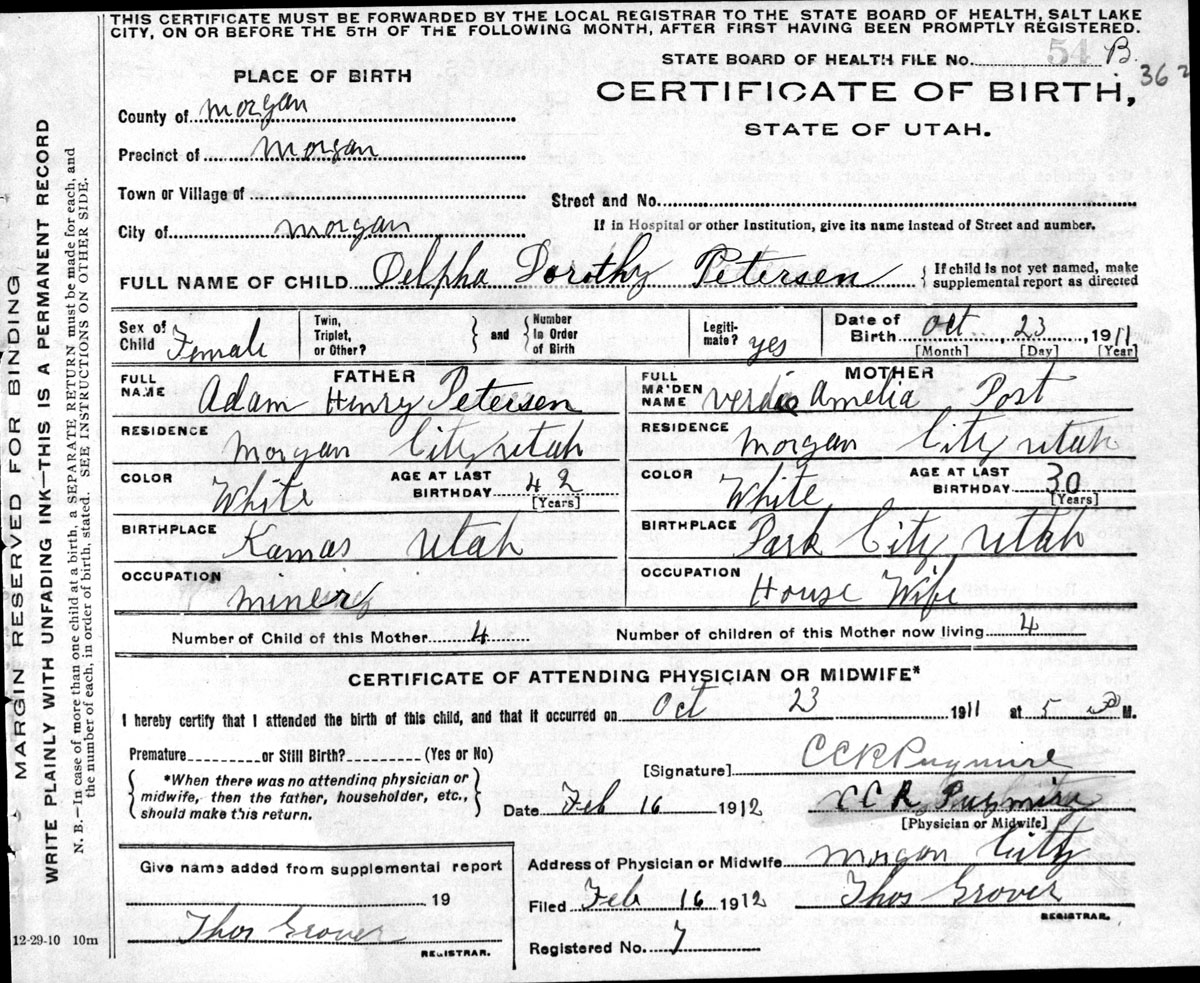 THIS CERTIFICATE MUST BE FORWARDED BY THE LOCAL REGISTRAR TO THE STATE BOARD OF HEALTH, SALT LAKE
CITY, ON OR BEFORE THE 5TH OF THE FOLLOWING MONTH, AFTER FIRST HAVING BEEN PROMPTLY REGISTERED.
STATE BOARD OF HEALTH FILE No. 54 B. 362
PLACE OF BIRTH
CERTIFICATE OF BIRTH,
STATE OF UTAH.
County of Morgan
Precinct of Morgan
Town or Village of
Street and No.
City of Morgan
If in Hospital or other Institution, give its name instead of Street and number.
FULL NAME OF CHILD Delpha Dorothy Petersen { If child is not yet named, make
supplemental report as directed
Sex of Child Female
Twin, Triplet, or Other? } and { Number in Order of Birth
Legiti-mate? yes
Date of Birth Oct, 23, 1911
[Month] [Day] [Year]
FATHER
FULL NAME Adam Henry Petersen
RESIDENCE Morgan City Utah
COLOR White AGE AT LAST BIRTHDAY 42 [Years]
BIRTHPLACE Kamas Utah
OCCUPATION miner
MOTHER
FULL MAIDEN NAME Verdie Amelia Post
RESIDENCE Morgan City Utah
COLOR White AGE AT LAST BIRTHDAY 30 [Years]
BIRTHPLACE Park City, Utah
OCCUPATION House Wife
Number of Child of this Mother 4 Number of children of this Mother now living 4
CERTIFICATE OF ATTENDING PHYSICIAN OR MIDWIFE*
I hereby certify that I attended the birth of this child, and that it occurred on Oct 23 1911 at 5 M.
Premature or Still Birth? (Yes or No)
{ *When there was no attending physician or
midwife, then the father, householder, etc.,
should make this return. }
[Signature] CCR Pugmire
Date Feb 16 1912 CCR Pugmire
[Physician or Midwife]
Address of Physician or Midwife Morgan City
Filed Feb 16 1912 Thos Grover
REGISTRAR.
Registered No. 7
Give name added from supplemental report
19
Thos Grover
REGISTRAR.
12-29-10 10m
MARGIN RESERVED FOR BINDING
WRITE PLAINLY WITH UNFADING INK—THIS IS A PERMANENT RECORD
N. B.—In case of more than one child at a birth, a SEPARATE RETURN must be made for each, and
the number of each, in order of birth, stated. SEE INSTRUCTIONS ON OTHER SIDE.